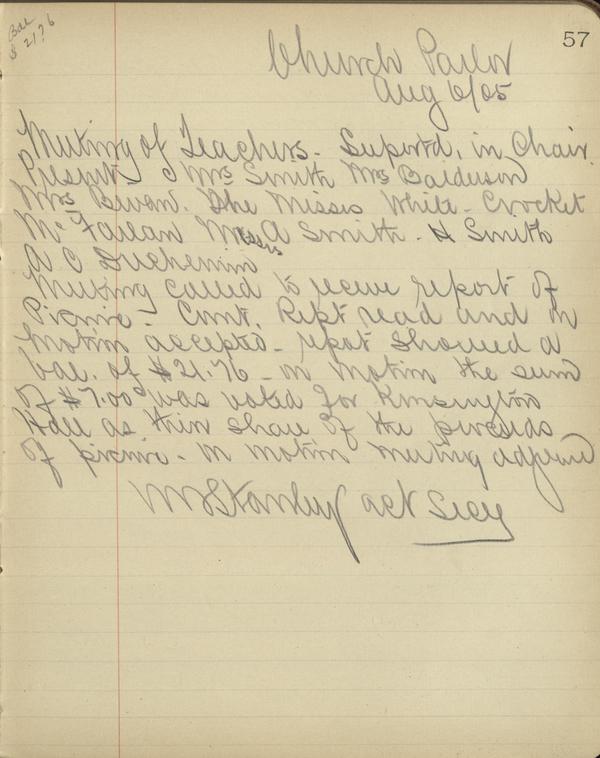 Bal
$ 21.76
57
Church Parlor
Aug 6/05
Meeting of Teachers - Suportd, in Chair.
Present - Mrs Smith Mrs Balderson
Mrs Bevan. The Misses White - Crocket
McFarlan Messrs A Smith - H Smith
A C Duchemin
Meeting called to receive report of
Picnic - Comt. Rept read and on
Motion accepted - repot showed a
bal. of $21.76 - on motion the sum
of $7.00 was voted for Kensington
Hall as thier share of the proceeds
of picnic - on motion meeting adjourned
Stanley act Secy